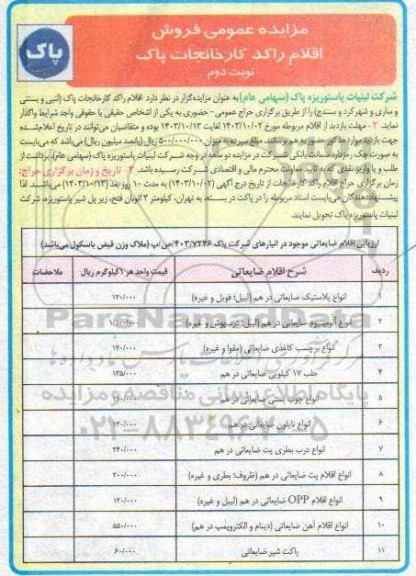 مزایده عمومی فروش
اقلام راکد کارخانجات پاک
نوبت دوم
پاک
شرکت لبنیات پاستوریزه پاک (سهامی عام) به عنوان مزایده‌گزار در نظر دارد اقلام راکد کارخانجات پاک (لبنی و بستنی
و ساری و شهرکرد و سنندج) را از طریق برگزاری حراج عمومی- حضوری به یکی از اشخاص حقیقی یا حقوقی واجد شرایط واگذار
نماید. ۲- مهلت بازدید از اقلام مربوطه مورخ ۱۴۰۳/۱۰/۰۲ لغایت ۱۴۰۳/۱۰/۱۲ بوده و متقاضیان می‌توانند در تاریخ اعلام‌شده
جهت بازدید موارد مذکور حضور به هم برسانند. مبلغ سپرده به میزان ۵۰۰/۰۰۰/۰۰۰ ریال (پانصد میلیون ریال) می‌باشد که می‌بایست
به صورت چک رمزدار، ضمانت بانکی شرکت در مزایده دو ماهه در وجه شرکت لبنیات پاستوریزه پاک (سهامی عام)، برداشت از
طلب و یا واریز نقدی که به تایید معاونت محترم مالی و اقتصادی شرکت رسیده باشد. ۳- تاریخ و زمان برگزاری حراج:
زمان برگزاری حراج اقلام راکد کارخانجات از تاریخ درج آگهی (۱۴۰۳/۱۰/۰۲) به مدت ۱۰ روز بعد (۱۴۰۳/۱۰/۱۳) می‌باشد لذا
پیشنهاددهندگان می‌بایست اسناد مربوطه را در پاکت در بسته، به تهران، کیلومتر ۳ اتوبان فتح، زیر پل شیر پاستوریزه، شرکت
لبنیات پاستوریزه پاک تحویل نمایند.
ارزیابی اقلام ضایعاتی موجود در انبارهای شرکت پاک ۴۰۳/۷۲۴۶ (ملاک وزن قبض باسکول می‌باشد)
ردیف شرح اقلام ضایعاتی قیمت واحد هر ۱ کیلوگرم ریال ملاحظات
۱ انواع پلاستیک ضایعاتی در هم (لیبل؛ فویل و غیره) ۱۲۰/۰۰۰
۲ انواع آلومینیوم ضایعاتی در هم (لیبل؛ درپوش و غیره)
۳ انواع برچسب کاغذی ضایعاتی (مقوا و غیره) ۱۲۰/۰۰۰
۴ حلب ۱۷ کیلویی ضایعاتی در هم ۱۳۵/۰۰۰
۵ انواع چوب بستنی ضایعاتی در هم
۶ انواع نایلون ضایعاتی در هم
۷ انواع درب بطری پت ضایعاتی در هم ۲۴۰/۰۰۰
۸ انواع اقلام پت ضایعاتی در هم (ظروف؛ بطری و غیره) ۲۰۰/۰۰۰
۹ انواع اقلام OPP ضایعاتی در هم (لیبل و غیره) ۱۲۰/۰۰۰
۱۰ انواع اقلام آهن ضایعاتی (دینام و الکتروپمپ در هم) ۵۵۰/۰۰۰
۱۱ پاکت شیر ضایعاتی ۶۰/۰۰۰
ParsNamadData
پایگاه اطلاع رسانی مناقصه و مزایده